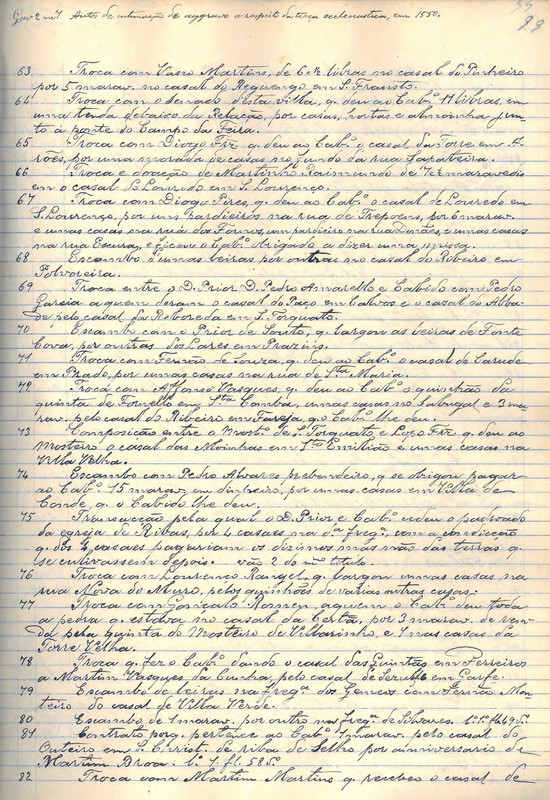 Gav 2 nº1 Autos de intimação de aggravo a respeito da terça ecclesiastica, em 1550.
99
63 Troca com Vasco Martins, de 6 e ½ libras no casal do Pinheiro
por 5 marav. no casal do Reguengo em S. Fraústo.
64 Troca com o Senado desta villa, q. deu ao Cabº 11 libras, em
uma tenda debaixo da Relação, por casas, hortas e almoinha jun-
to á ponte do Campo da Feira.
65 Troca com Diogo Frz q. deu ao Cabº o casal da Torre em A-
rões, por uma morada de casas no fundo da rua Sapateira.
66 Troca e doação de Martinho Raimundo de 7 e ½ maravedis
em o casal do Louredo em S. Lourenço.
67 Troca com Diogo Pires, q. deu ao Cabº o casal de Louredo em
S. Lourenço, por um pardieiros na rua de Trepoens, por 6 marav.
e umas casas na rua dos Fornos, um pardieiro na rua Donães, e umas casas
na rua Escura, e ficou o Cabº obrigado a dizer uma missa.
68 Escambo d'umas leiras por outras no casal do Ribeiro em
Polvoreira.
69 Troca entre o D. Prior D. Pedro Amarello e Cabido com Pedro
Garcia a quem deram o casal do Paço em Calvos e o casal do Abba-
de pelo casal da Reboreda em S. Torquato.
70 Escambo com o Prior de Souto, q. largou as leiras de Fonte
Cova, por outras dos Lares em Prazins.
71 Troca com Fernão de Souza, q. deu ao Cabº o casal de Carude
em Prado, por umas casas na rua de Sta Maria.
72 Troca com Affonso Vasques, q. deu ao Cabº o quinhão da
quinta de Fornello em Sta Comba, umas casas no Sabugal e 3 ma-
rav. pelo casal do Ribeiro em Tareja, q. o Cabº lhe deu.
73 Composição entre o Mostº de S. Torquato e Lopo Frz q. deu ao
Mosteiro o casal das Moinhas em Sto Emilião e umas casas na
Villa Velha.
74 Escambo com Pedro Alvares prebendeiro, q. se obrigou pagar
ao Cabº 15 marav. em dinheiro, por umas casas em Villa de
Conde q. o Cabido lhe deu.
75 Transacção pela qual o D. Prior e Cabº cedem o padroado
da egreja de Ribas, por 4 casaes na dª fregª com a condicção
q. dos 4 casaes pagariam os dizimos mas não das terras q.
se cultivassem depois. vão 2 do mmo titulo.
76 Troca com Lourenço Rangel q. largou umas casas na
rua Nova do Muro, pelos quinhões de varias outras casas.
77 Troca com Gonçalo Romeu, a quem o Cabº deu toda
a pedra q. estava no casal da Certa, por 3 marav. de ren-
da pela quinta do Mosteiro de Villarinho, e 1 mas casas da
Torre Velha.
78 Troca q. fez o Cabº dando o casal das Quintãs em Ferreiros
a Martim Vasques da Cunha, pelo casal de Serulle em Garfe.
79 Escambo de leiras na fregª dos Gemeos com Fernão Mon-
teiro do casal de Villa Verde.
80 Escambo de 1 marav. por outro nas fregª de Silvares. lº 1º fl 495º
81 Contrato porq. pertence ao Cabº 1 marav. pelo casal do
Outeiro em S. Christ. de riba de Selho por anniversario de
Martim Broa: lº 1 fl. 585º
82 Troca com Martim Martins q. recebeo o casal de